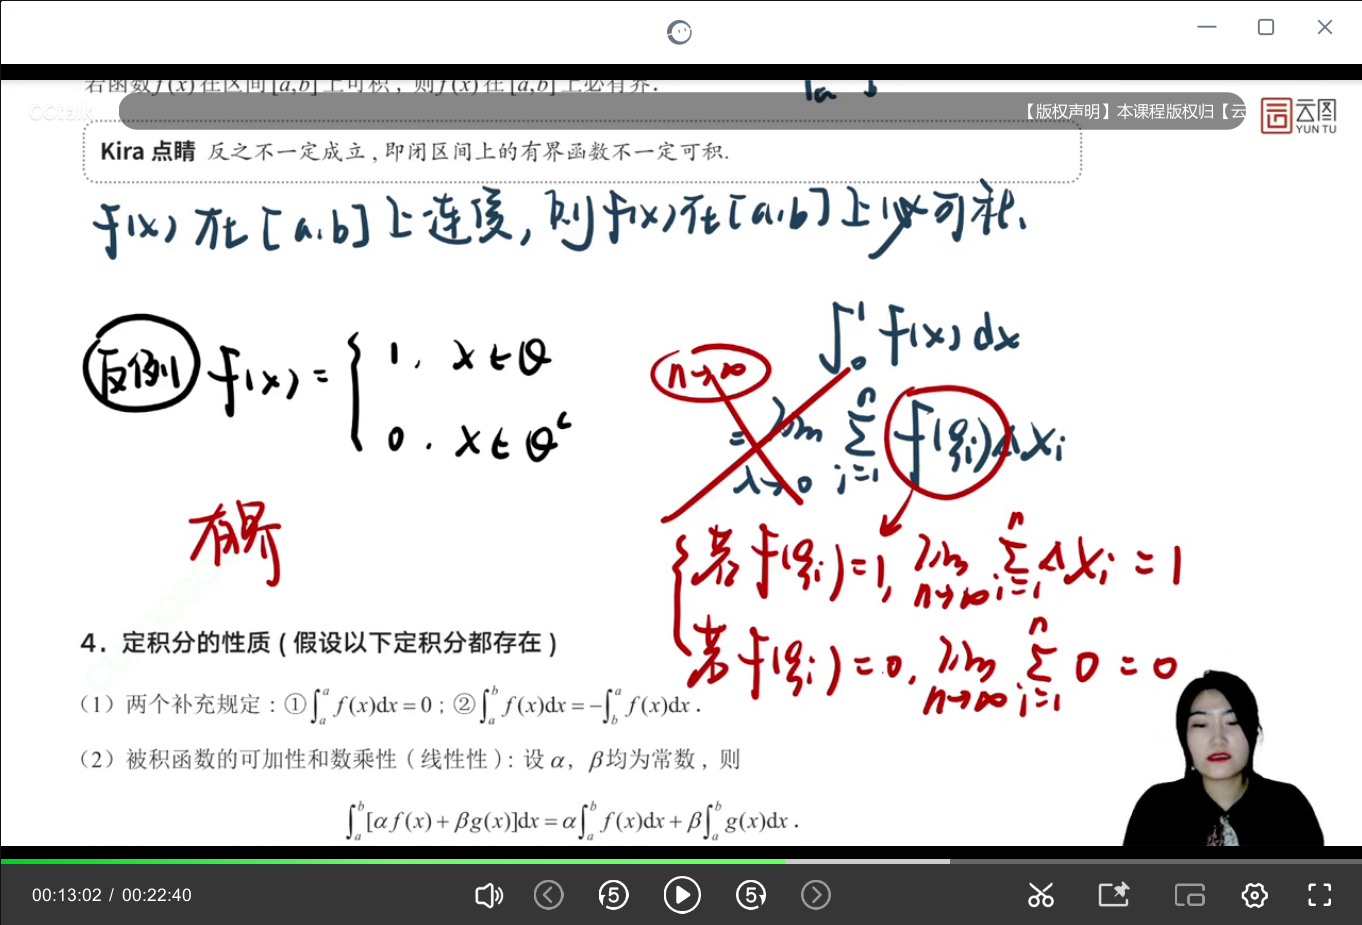 若函数f(x)在区间[a,b]上可积，则f(x)在[a,b]上必有界.
CCtalk
【版权声明】本课程版权归【云
云图
YUN TU
Kira 点睛 反之不一定成立，即闭区间上的有界函数不一定可积.
f(x)在[a,b]上连续,则f(x)在[a,b]上必可积.
反例 f(x)={
1, x∈Q
0, x∈Qᶜ
有界
∫₀¹ f(x)dx
n→∞
= lim Σ f(ξi)Δxi
λ→0 i=1 n
若f(ξi)=1, lim Σ Δxi = 1
n→∞ i=1 n
若f(ξi)=0, lim Σ 0 = 0
n→∞ i=1 n
4. 定积分的性质 ( 假设以下定积分都存在 )
（1）两个补充规定：①∫ₐᵃ f(x)dx=0；②∫ₐᵇ f(x)dx=−∫ᵇₐ f(x)dx .
（2）被积函数的可加性和数乘性（线性性）：设 α，β均为常数，则
∫ₐᵇ[αf(x)+βg(x)]dx=α∫ₐᵇ f(x)dx+β∫ₐᵇ g(x)dx .
00:13:02 / 00:22:40
5
5